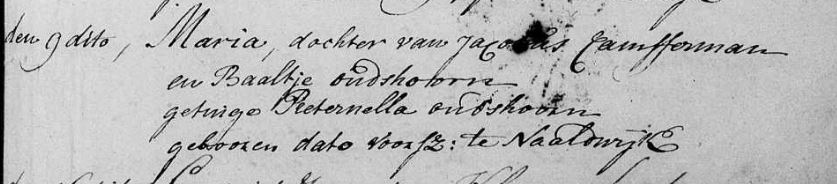 den 9 dito, Maria, dochter van Jacobus Camfferman
en Baaltje oudshoorn
getuige Pieternella oudshoorn
gebooren dato voorsz: te Naaldwijk